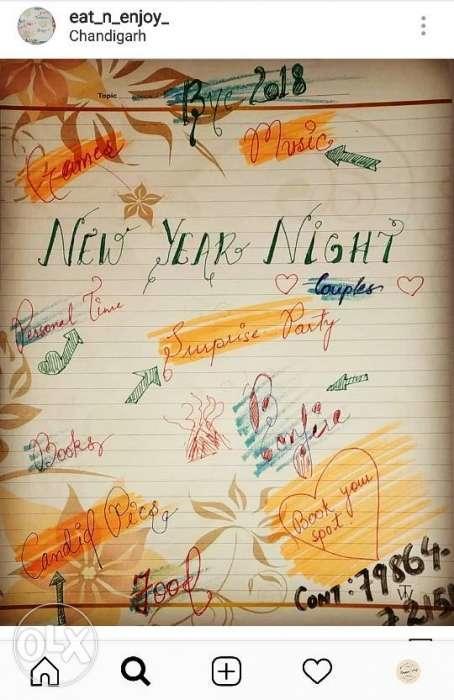 eat_n_enjoy_
Chandigarh
Topic
Bye 2018
Games
Music
NEW YEAR NIGHT
Couples
Personal Time
Surprise Party
Bonfire
Books
Book your spot!
Candid Pics
Food
CONT: 79864-
OLX